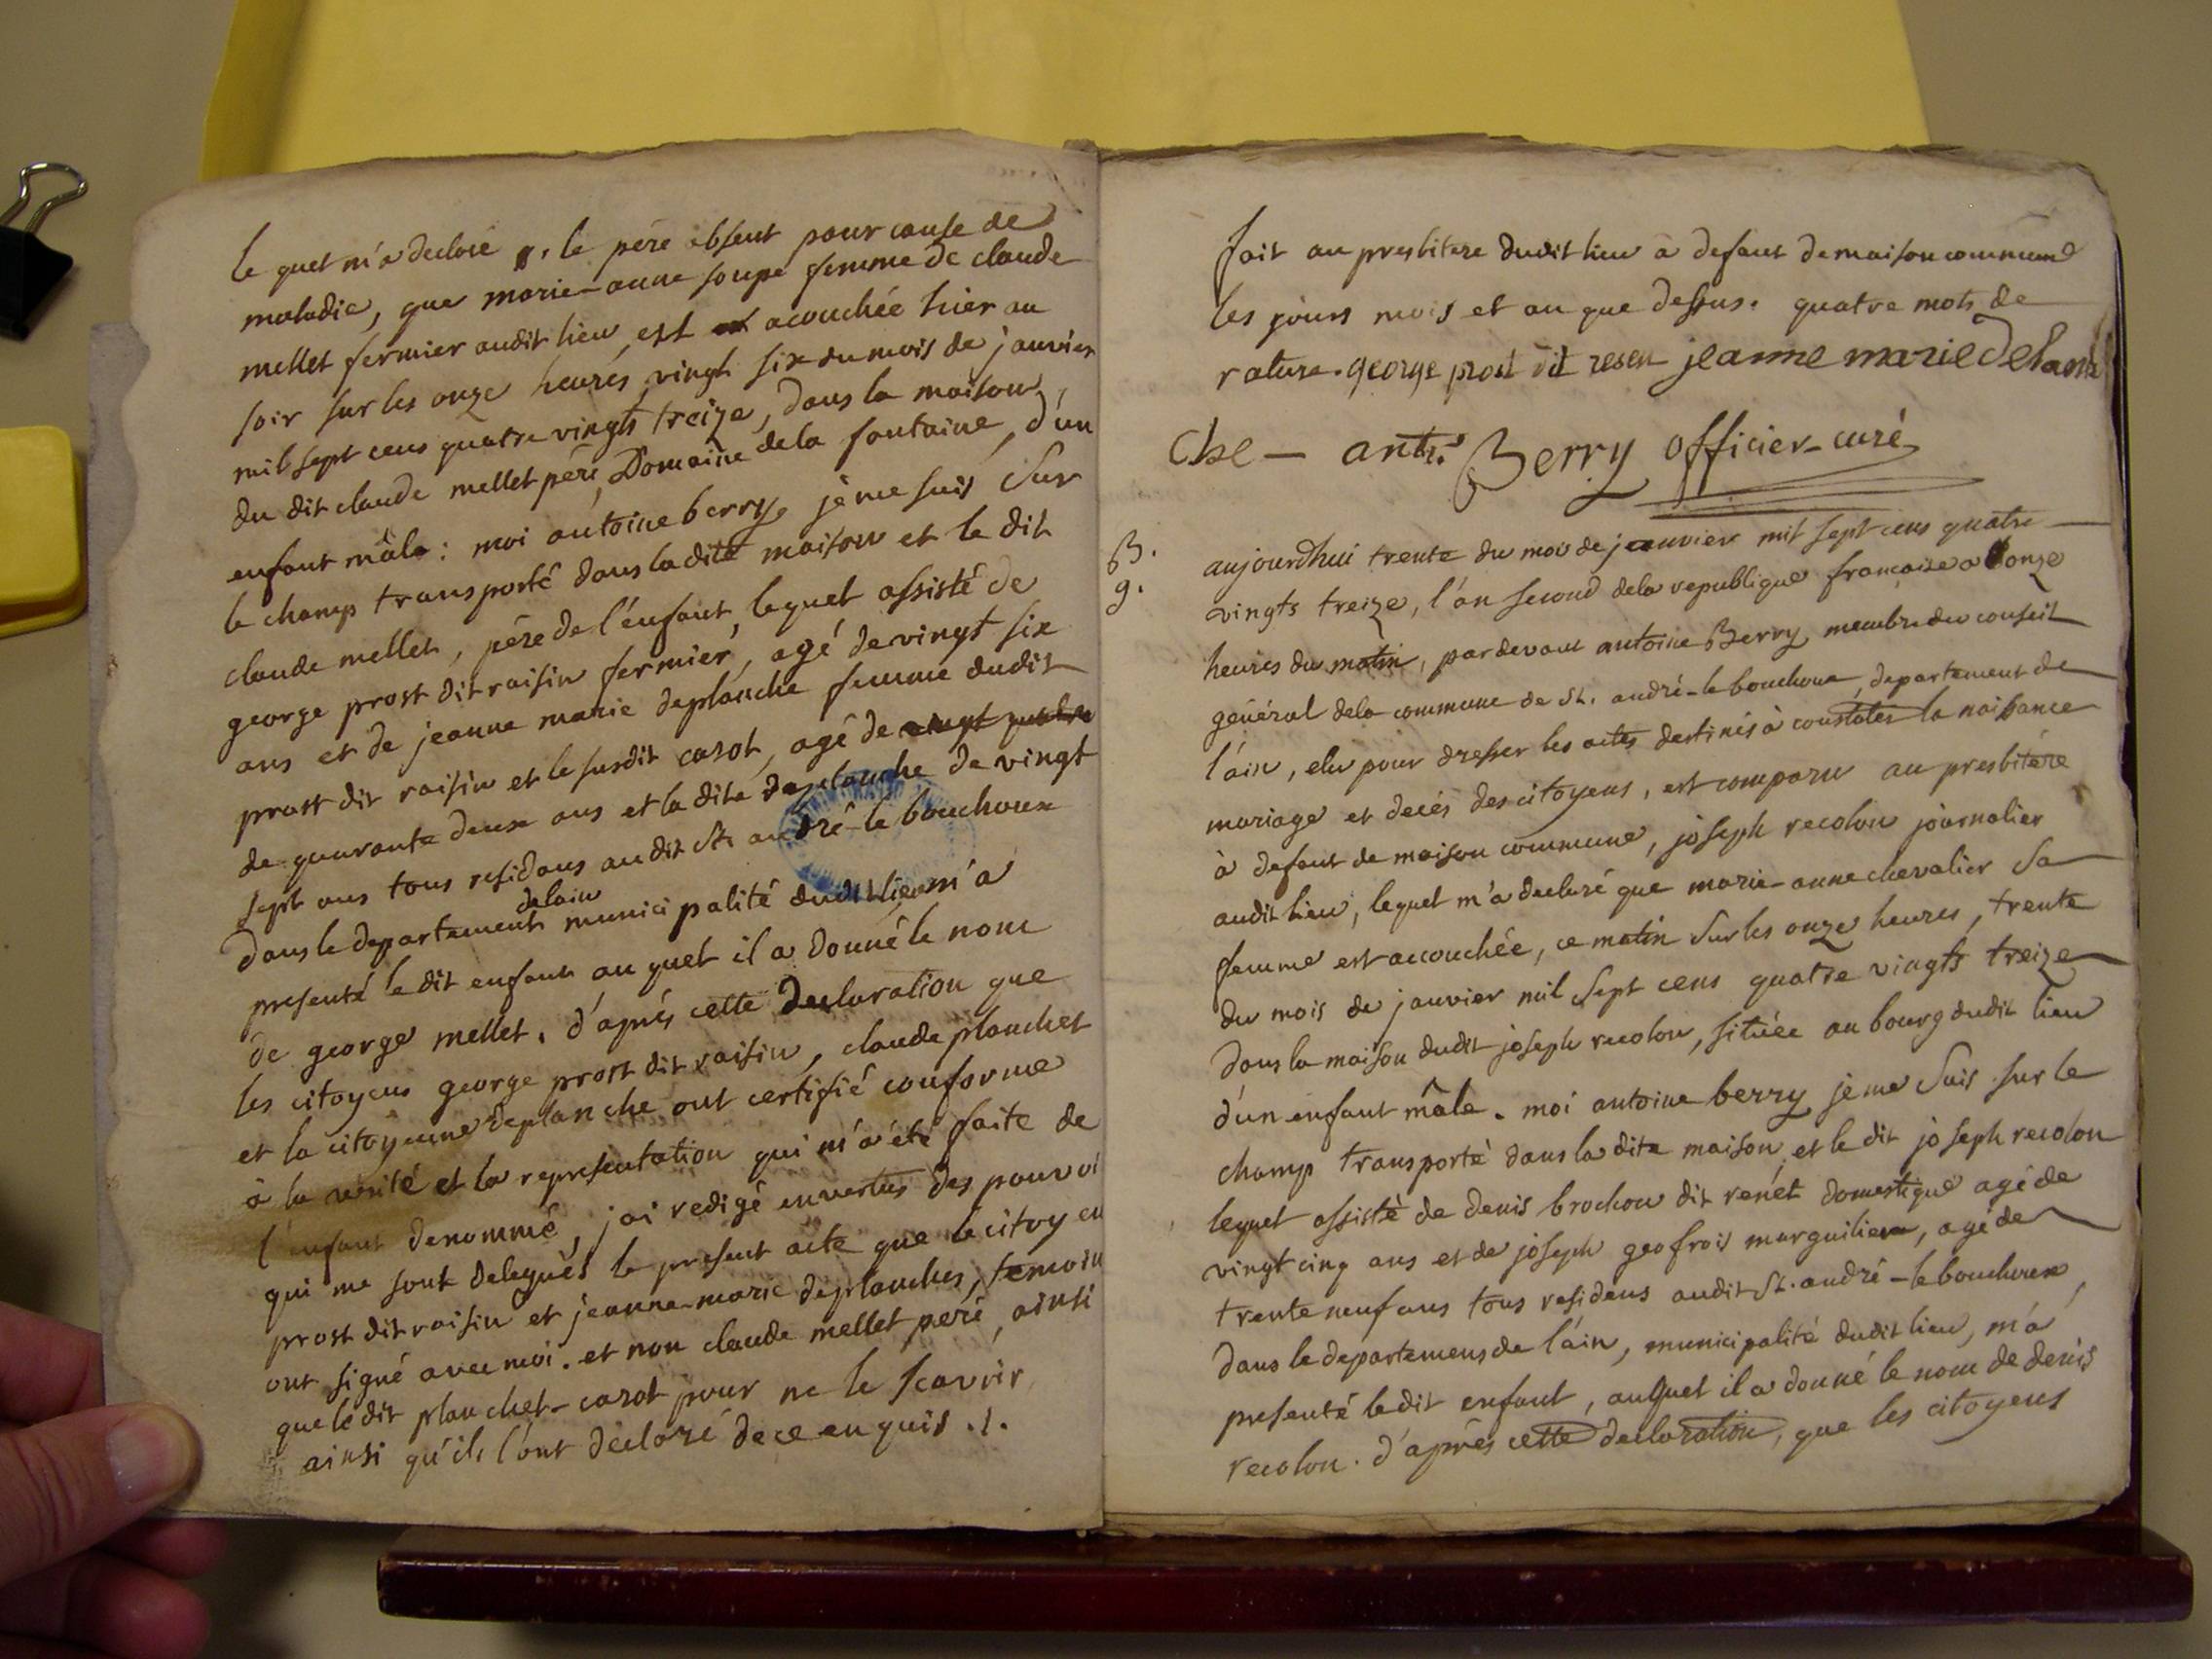 le quel m'a declaré, le pére absent pour cause de
maladie, que marie-anne soupe femme de claude
mellet fermier audit lieu, est acouchée hier au
soir sur les onze heures, vingt six du mois de janvier
mil sept cens quatre vingts treize, dans la maison
du dit claude mellet pére, Domaine dela fontaine, d'un
enfant mâle: moi antoine berry, je me suis sur
le champ transporté dans la dite maison et le dit
claude mellet, pére de l'enfant, lequel assisté de
george prost dit raisin fermier, agé de vingt six
ans et de jeanne marie deplanche femme dudit
prost dit raisin et le susdit carot, agé de
de quarante deux ans et la dite deplanche de vingt
sept ans tous residans au dit St. andré-le bouchoux
dans le departement delain municipalité dudit lieu m'a
presenté le dit enfant au quel il a donné le nom
de george mellet. d'aprés cette declaration que
les citoyens george prost dit raisin, claude planchet
et la citoyenne deplanche ont certifié conforme
à la verité et la representation qui m'a été faite de
l'enfant denommé, j'ai redigé en vertus des pouvoi
qui me sont delegués le present acte que le citoyen
prost dit raisin et jeanne-marie deplanches, temoin
ont signé avec moi. et non claude mellet pere, ainsi
que le dit planchet-carot pour ne le scavoir
ainsi qu'ils l'ont déclaré de ce enquis ./.
fait au presbitere dudit lieu a defaut de maison commune
les jours mois et an que dessus. quatre mots de
rature. george prost dit resen jeanne marie delanc
che - ant. Berry officier-curé
B. aujourdhui trente du mois de janvier mil sept cens quatre
g. vingts treize, l'an second dela republique francaise a onze
heures du matin, pardevant antoine Berry membre du conseil
général dela commune de St. andré-le bouchoux, departement de
l'ain, elu pour dresser les actes destinés à constater la naissance
mariage et decés des citoyens, est comparu au presbitére
à defaut de maison commune, joseph recolon journalier
audit lieu, lequel m'a declaré que marie-anne chevalier sa
femme est accouchée, ce matin sur les onze heures, trente
du mois de janvier mil sept cens quatre vingts treize
dans la maison dudit joseph recolon, située au bourg dudit lieu
d'un enfant mâle. moi antoine berry je me suis sur le
champ transporté dans la dite maison, et le dit joseph recolon
lequel assisté de denis brochon dit renét domestique agé de
vingt cinq ans et de joseph geofrois marguilier, agé de
trente neuf ans tous residens audit St. andré-le bouchoux,
dans le departemens de l'ain, municipalité dudit lieu, m'a
presenté le dit enfant, auquel il a donné le nom de denis
recolon. d'aprés cette declaration, que les citoyens